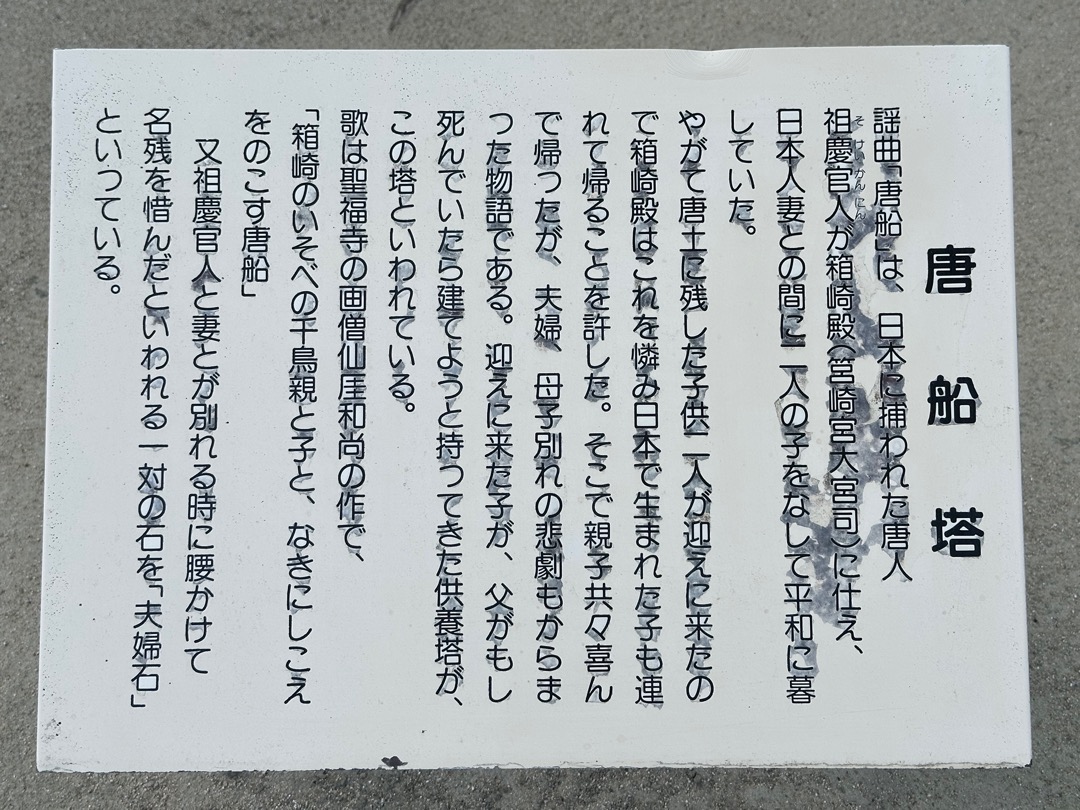 唐船塔
謡曲「唐船」は、日本に捕われた唐人
祖慶官人が箱崎殿(筥崎宮大宮司)に仕え、
そけいかんにん
日本人妻との間に二人の子をなして平和に暮
していた。
やがて唐土に残した子供二人が迎えに来たの
で箱崎殿はこれを憐み日本で生まれた子も連
れて帰ることを許した。そこで親子共々喜ん
で帰ったが、夫婦、母子別れの悲劇もからま
った物語である。迎えに来た子が、父がもし
死んでいたら建てようと持つてきた供養塔が、
この塔といわれている。
歌は聖福寺の画僧仙厓和尚の作で、
「箱崎のいそべの千鳥親と子と、なきにしこえ
をのこす唐船」
又祖慶官人と妻とが別れる時に腰かけて
名残を惜んだといわれる一対の石を「夫婦石」
といつている。